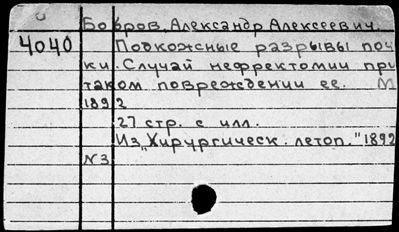 Бобров, Александр Алексеевич.
4040 Подкожные разрывы поч
ки. Случай нефректомии при
таком повреждении ее. М
1892
27 стр. с илл.
Из „Хирургическ. летоп." 1892
N3